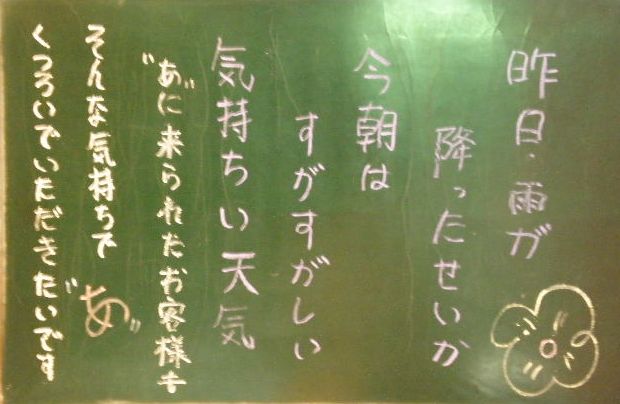 昨日、雨が
降ったせいか
今朝は
すがすがしい
気持ちい天気
"あ"に来られたお客様も
そんな気持ちで
くつろいでいただきたいです
"あ"